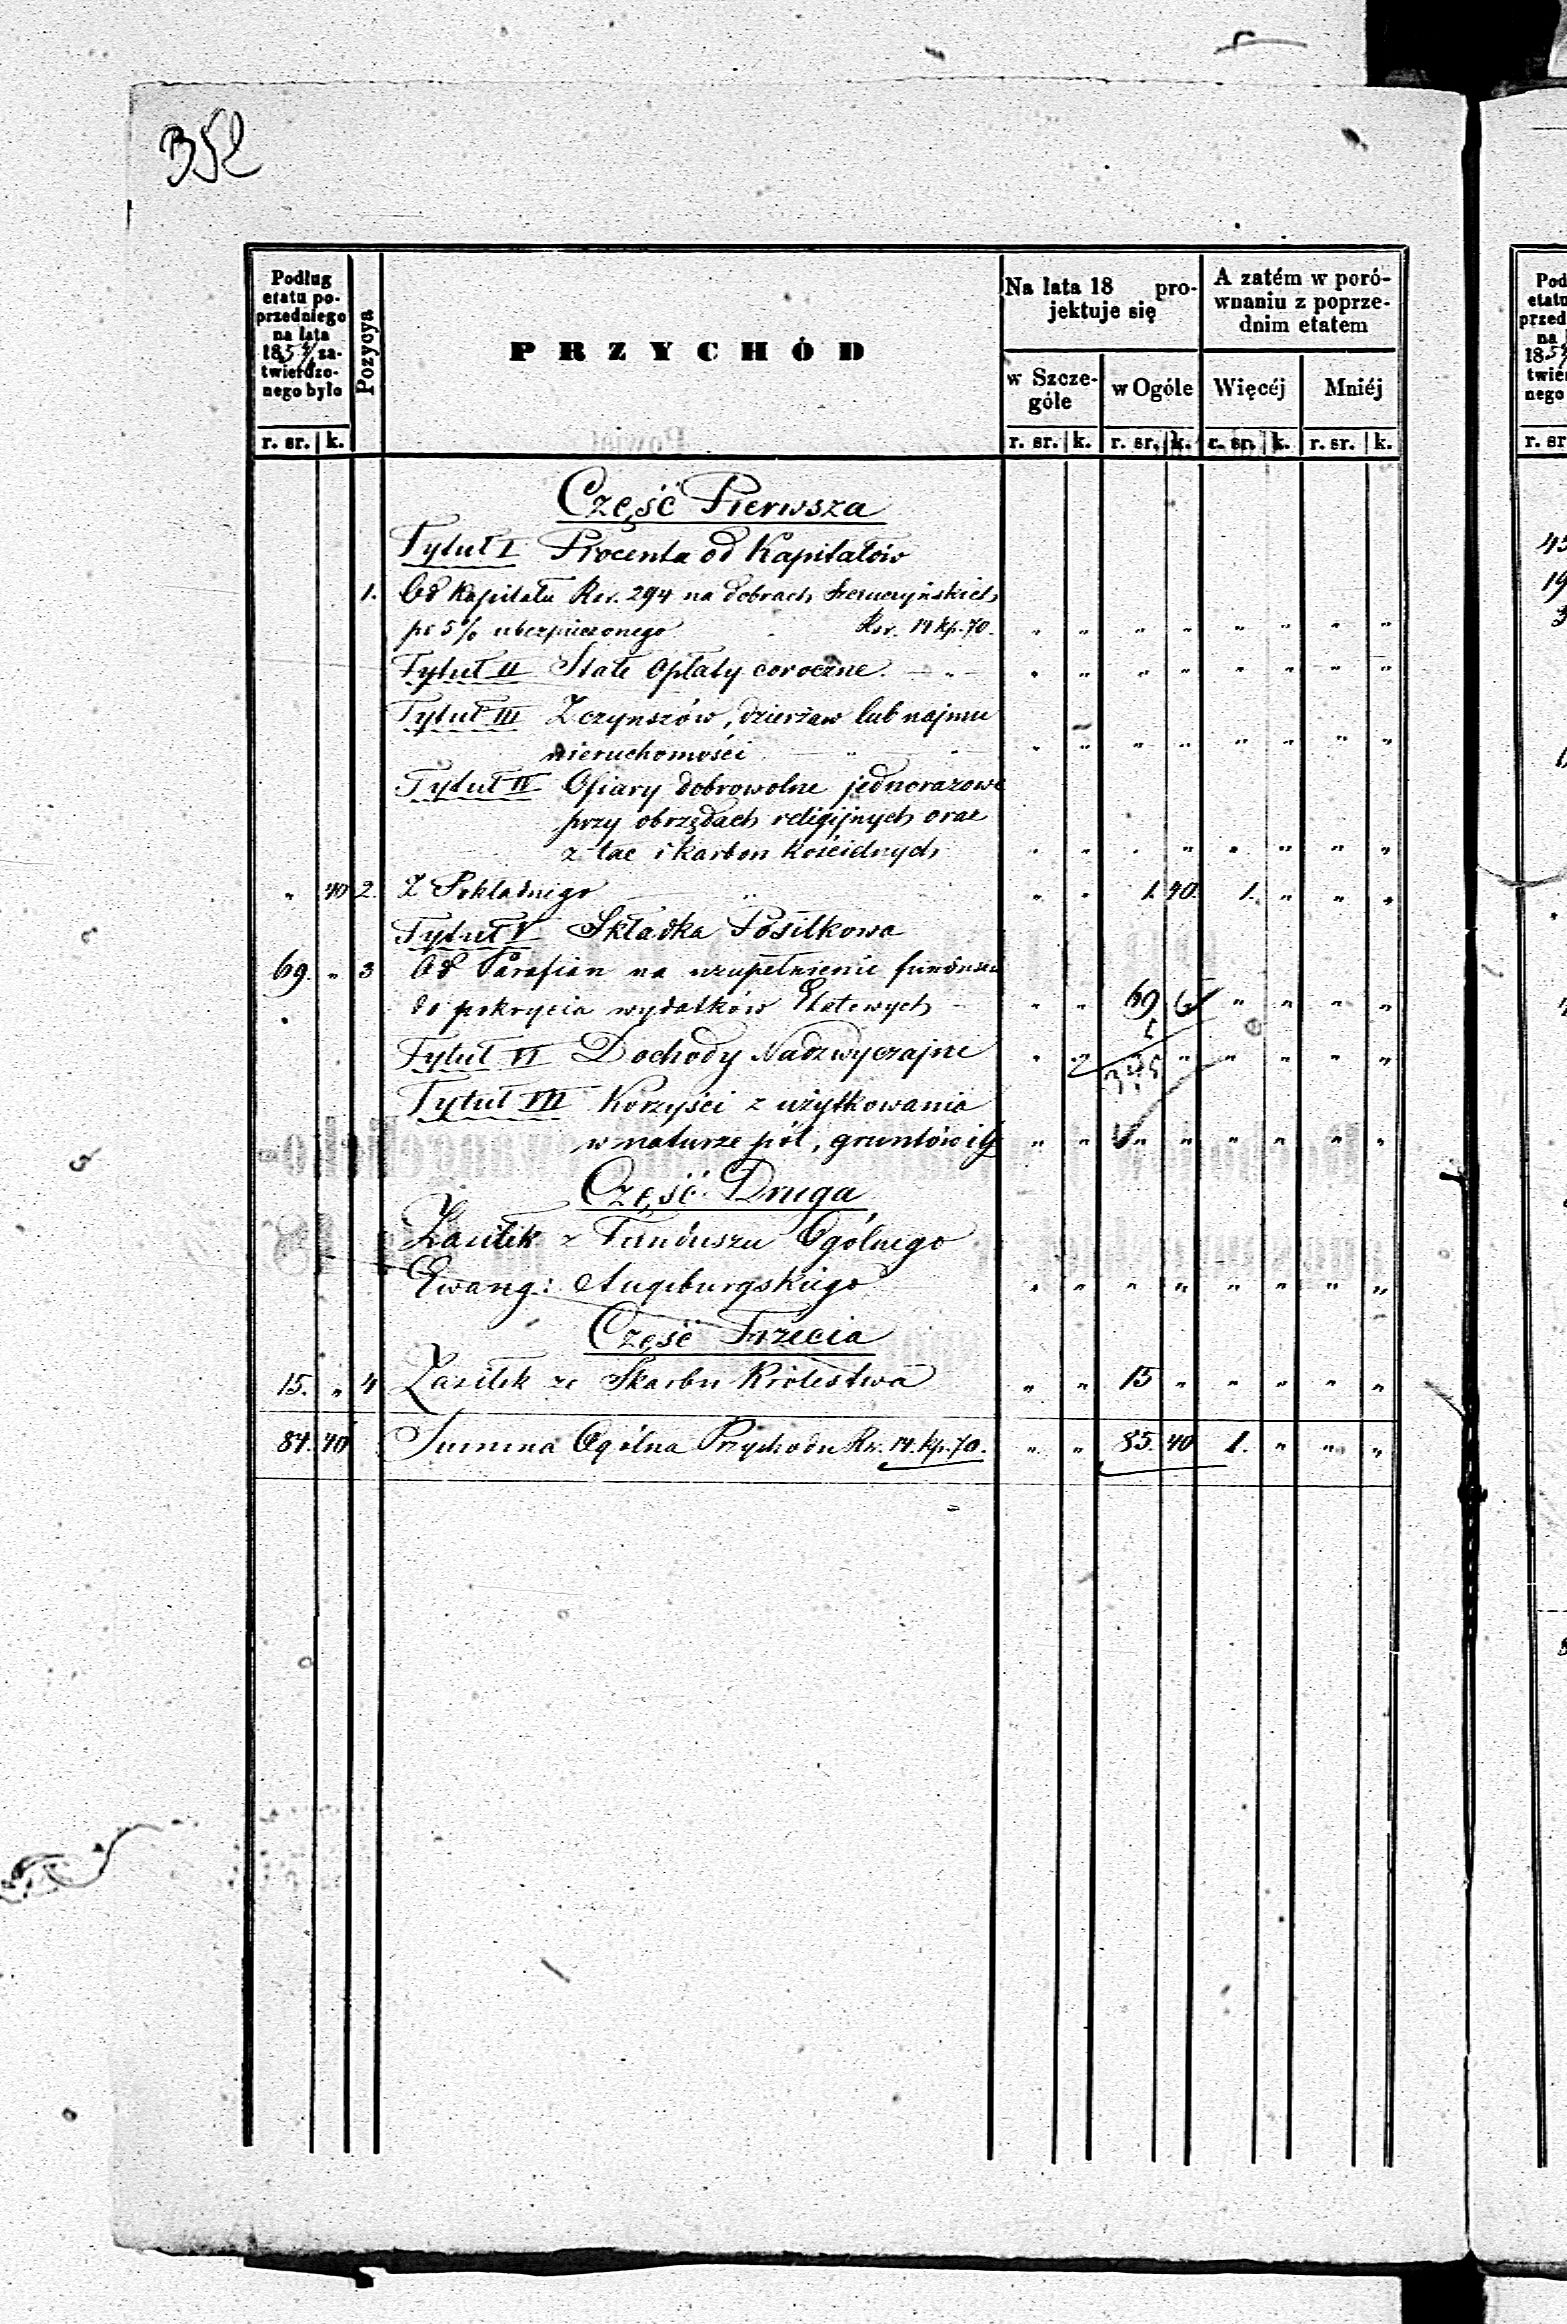 352
Podług etatu poprzedniego na lata 185 4/ zatwierdzonego było
Pozycya
PRZYCHÓD
Na lata 18 projektuje się
A zatém w porównaniu z poprzednim etatem
w Szczególe
w Ogóle
Więcéj
Mniéj
r. sr. k. r. sr. k. r. sr. k. r. sr. k. r. sr. k.
Część Pierwsza
Tytuł I Procenta od Kapitałów
1. Od Kapitału Rsr. 294 na dobrach
po 5% ubezpieczonego Rsr. 14 kp. 70. " " " " " " " "
Tytuł II Stałe Opłaty coroczne. " " " " " " " "
Tytuł III Z czynszów, dzierżaw lub najmu
nieruchomości " " " " " " " "
Tytuł IV Ofiary dobrowolne jednorazowe
przy obrzędach religijnych oraz
z tac i karbon Kościelnych " " " " " " " "
" 40 2. Z Pokładnego " " 1. 40. 1. " " "
Tytuł V Składka Posiłkowa
69. " 3 Od Parafian na uzupełnienie funduszu
do pokrycia wydatków Etatowych " " 69 " " " "
Tytuł VI Dochody Nadzwyczajne " " " " " " "
Tytuł VII Korzyści z użytkowania
w naturze pól, gruntów itp " " " " " " " "
Część Druga
Zasiłek z Funduszu Ogólnego
Ewang: Augsburgskiego " " " " " " " "
Część Trzecia
15. " 4 Zasiłek ze Skarbu Królestwa " " 15 " " " " "
84. 40 Summa Ogólna Przychodu Rsr. 14. kp. 70. " " 85. 40 1. " " "
Pod
etatu
przed
na
185
twier
nego
r. sr